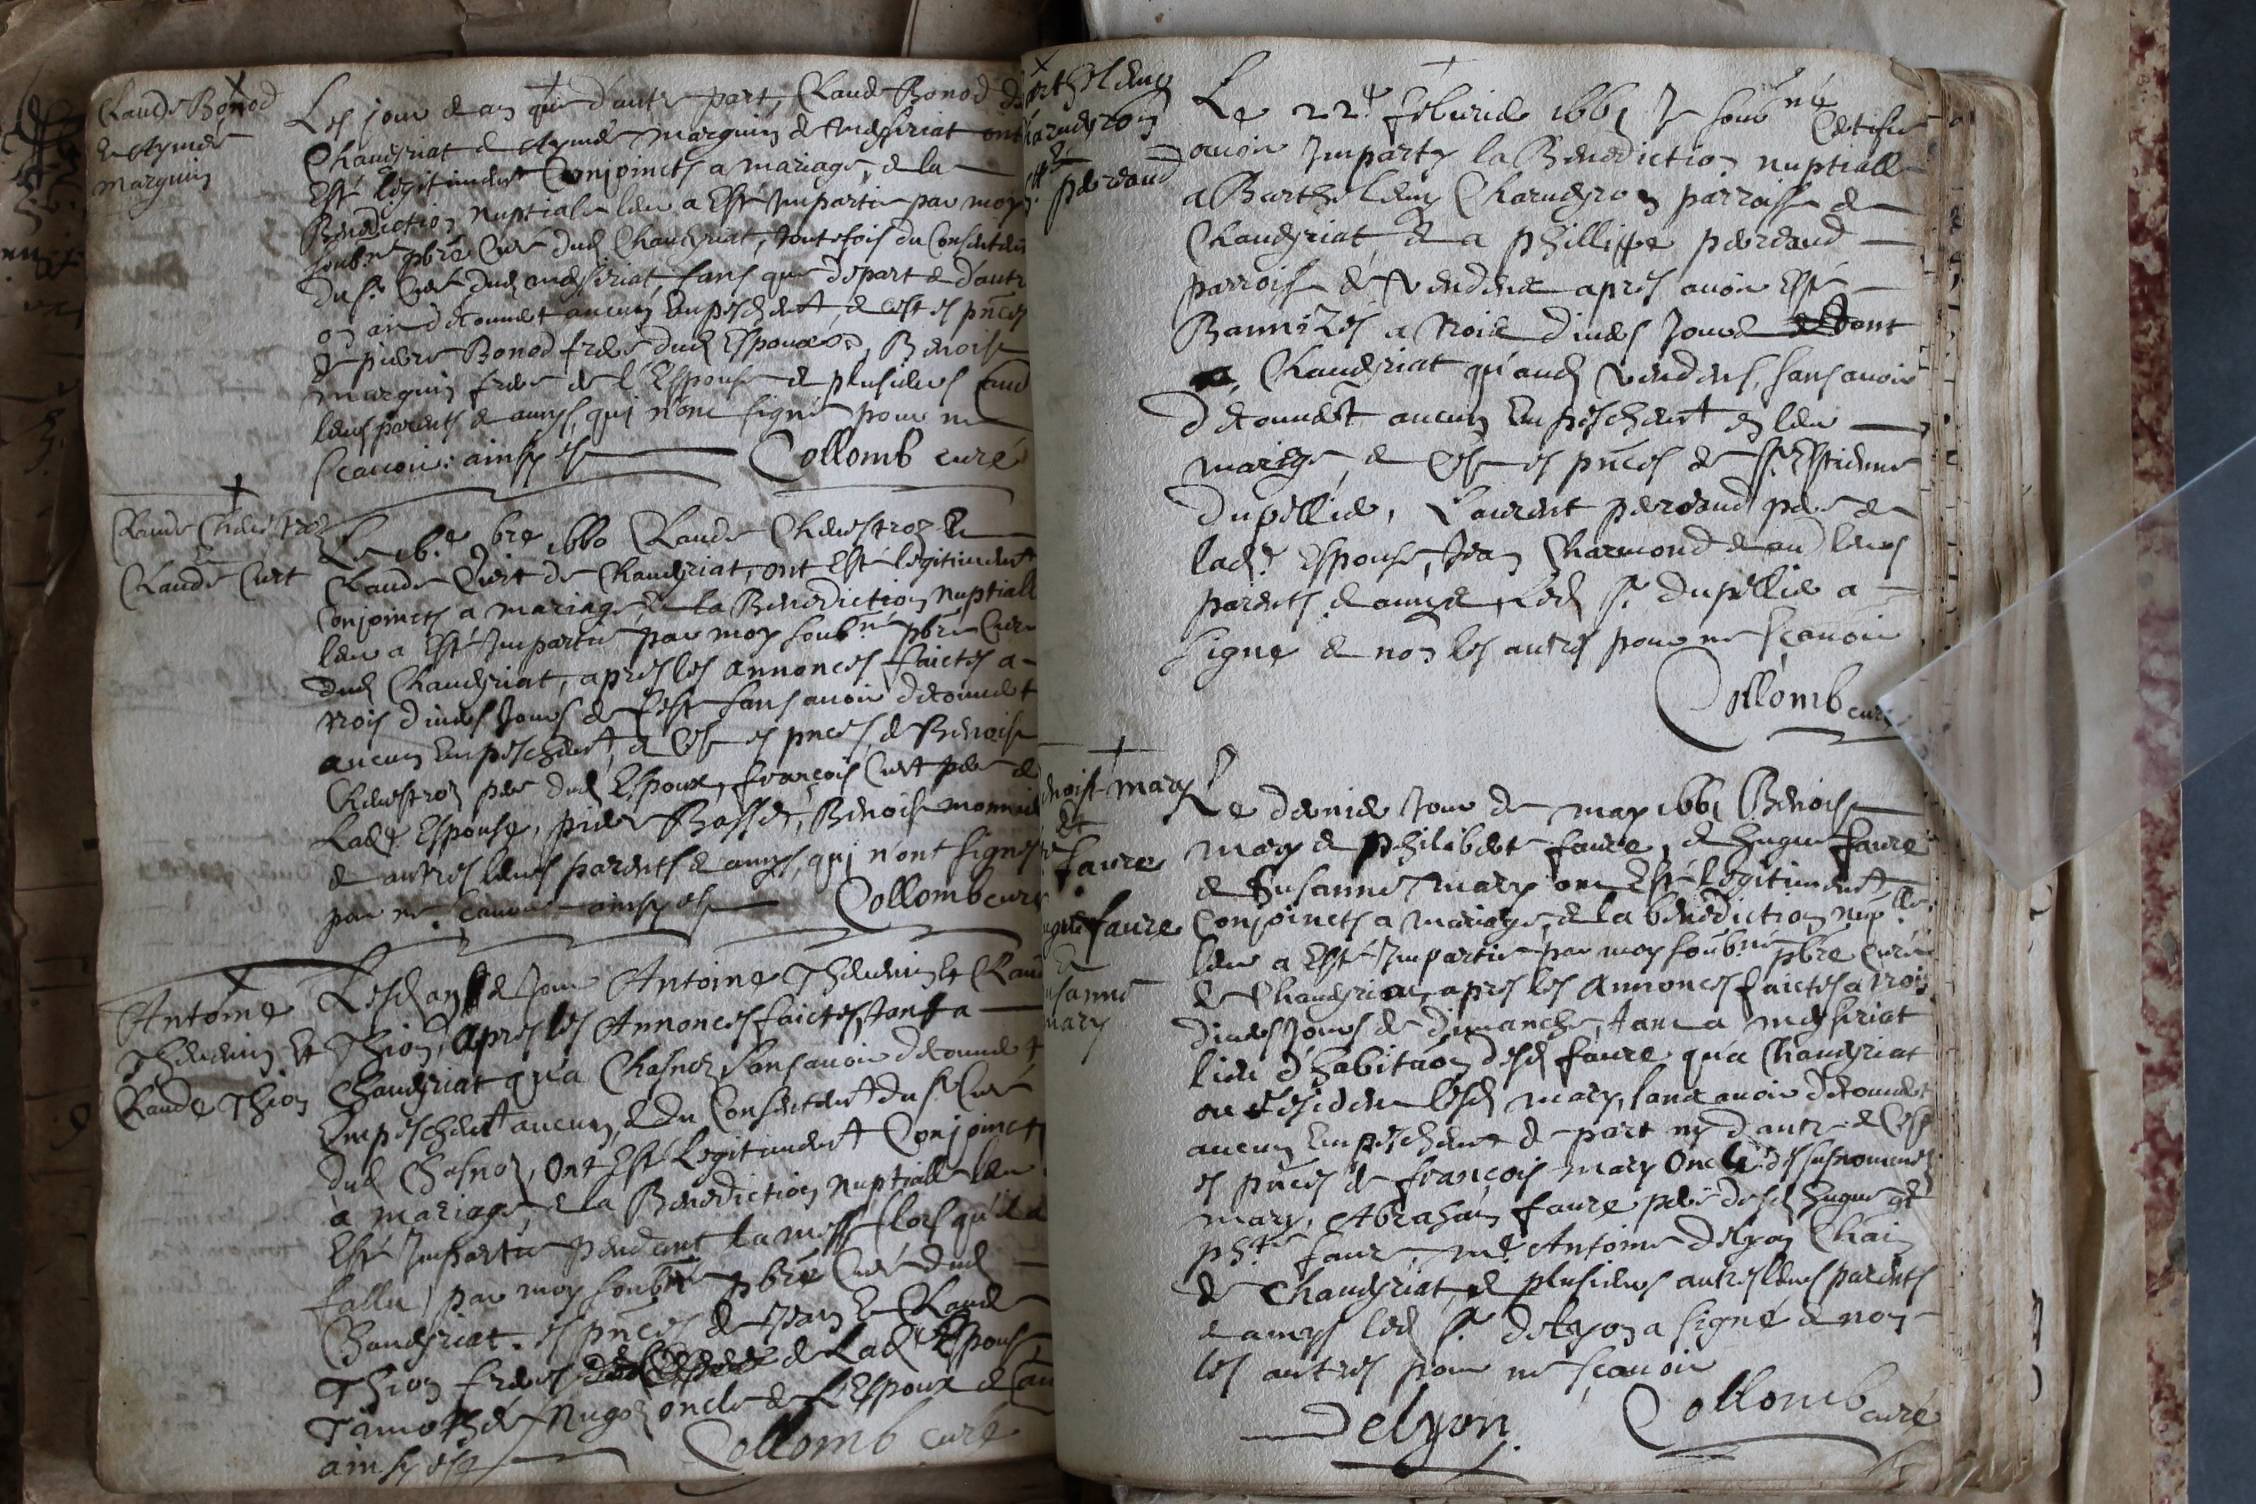 Claude Bonod
et Aymée
Marguin
Les jour et an que d'autre part, Claude Bonod de
Chaveyriat et Aymée Marguin de Mezeriat ont
esté legitimement conjoincts a mariage, et la
Benediction nuptiale leur a esté impartie par moy
soub.né pbre curé dud Chaveyriat, toutefois du consentem
du sr curé dud Mezeriat, sans que de part et d'autre
on ait decouvert aucun empeschemt, et c'est es pnces
de pierre Bonod frere dud Espoux, Benoist
Marguin frere de l'Espouse et plusieurs au
leurs parents et amys, qui n'ont signé pour ne
scavoir. ainsy est Collomb curé
Claude Chevestroz
et
Claude Curt
Le 6.e bre 1660 Claude Chevestroz et
Claude Curt de Chaveyriat, ont esté legitimemt
conjoincts a mariage, et la Benediction nuptiall
leur a esté impartie par moy soub.né pbre curé
dud Chaveyriat, apres les annonces faictes a
trois divers jours de feste sans avoir decouvert
aucun empeschemt, et c'est es pnces de Benoist
Chevestroz pere dud Espoux, françois Curt pere de
Lade Espouse, pierre Basset, Benoist Monnier
et autres leurs parents et amys, qui n'ont signé
par ne scavoir ainsy est Collomb curé
Antoine
Thevenin et
Claude Thion
Lesd an et jour Antoine Thevenin et Claude
Thion, apres les Annonces faictes, tant a
Chaveyriat qu'a Chasnoz sans avoir decouvert
Empeschemt aucun, et du consentemt du sr curé
dud Chasnoz, ont esté legitimemt conjoincts
a mariage, et la Benediction nuptialle leur
esté impartie pendant la messe (lors qu'il a
fallu) par moy soub.né pbre curé dud
Chaveyriat. es pnces de Jean et Claude
Thion freres de Lade Espouse
Timothée oncle de L'Espoux et au
ainsy est Collomb curé
arthelemy
harveyron
et
perraud
Le 22e febvrier 1661 Je soub.né Certifie
avoir Imparty la Benediction nuptialle
a Barthelemy Charveyron parroisse de
Chaveyriat, et a phillippe perraud
parroisse de Vendene apres avoir esté
Bannizes a trois divers jours tant
a Chaveyriat qu'aud Vendens, sans avoir
decouvert aucun empeschemt en leur
mariage, et c'est es pnces de sr Estienne
Dupellier, Laurent perraud pere de
lade Espouse, Jean Charmond et au leurs
parents et amys, led sr. Dupellier a
signe et non les autres pour ne scavoir
Collomb curé
enoist mary
et
faure
ugue faure
et
usanne
mary
Le dernier jour de may 1661 Benoist
mary et philiberte faure, et hugue faure
et Susanne Mary ont esté legitimemt
conjoincts a mariage, et la benediction nup.lle
leur a esté Impartie par moy soub.né pbre curé
de Chaveyriat, apres les Annonces faictes a trois
divers jours de dimanche, tant a Mezeriat
lieu d'habitaõn desd faure qu'a Chaveyriat
ou resident lesd mary, sans avoir decouvert
aucun empeschemt de part ny d'autre et c'est
es pnces de françois mary oncle des susnommés
mary, Abraham faure pere desd hugue et
phte faure, me Antoine Delyon Chain
de Chaveyriat, et plusieurs autres leurs parents
et amys led sr. delyon a signé et non
les autres pour ne scavoir
Delyon. Collomb curé